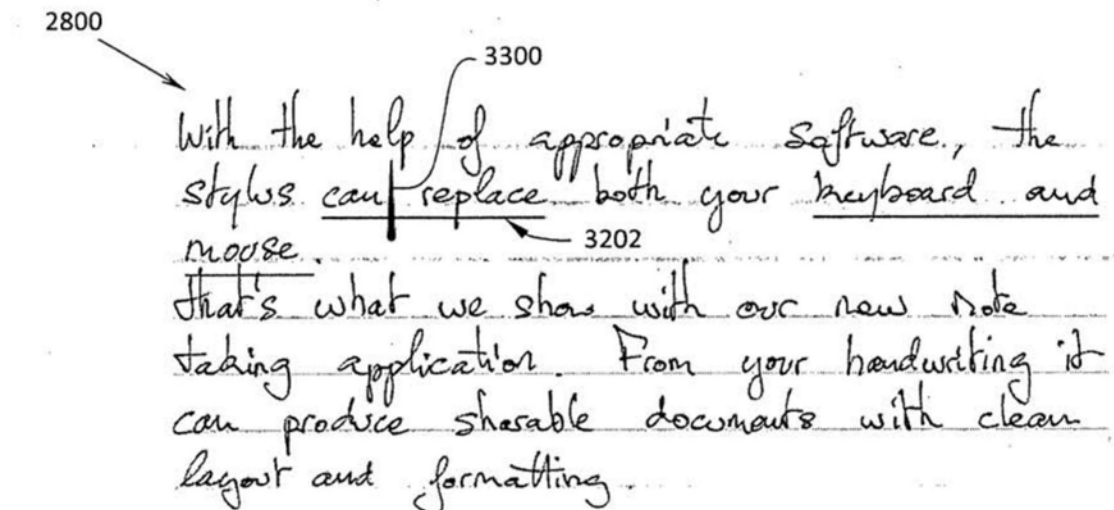 2800
3300
With the help of appropriate software, the
stylus can replace both your keyboard and
3202
mouse.
that's what we show with our new note
taking application. From your handwriting it
can produce sharable documents with clean
layout and formatting.